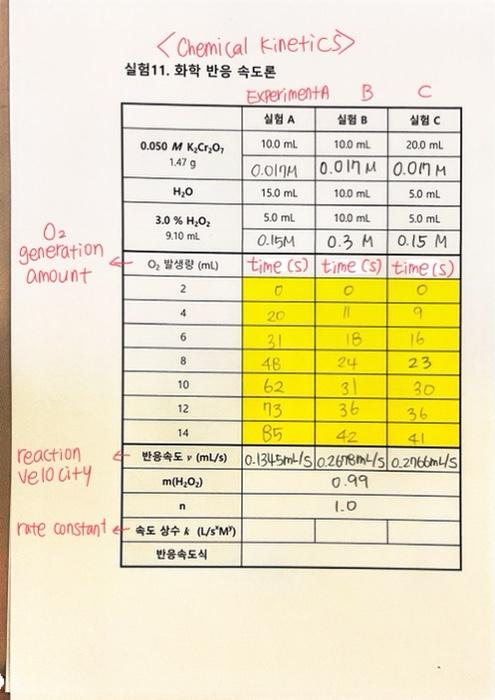 <Chemical Kinetics>
실험11. 화학 반응 속도론
Experiment A B C
실험 A 실험 B 실험 C
0.050 M K₂Cr₂O₇ 10.0 mL 10.0 mL 20.0 mL
1.47 g 0.017M 0.017M 0.017M
H₂O 15.0 mL 10.0 mL 5.0 mL
3.0 % H₂O₂ 5.0 mL 10.0 mL 5.0 mL
9.10 mL 0.15M 0.3 M 0.15 M
O₂ generation amount ← O₂ 발생량 (mL) time (s) time (s) time (s)
2 0 0 0
4 20 11 9
6 31 18 16
8 48 24 23
10 62 31 30
12 73 36 36
14 85 42 41
reaction velocity ← 반응속도 v (mL/s) 0.1345mL/s 0.2678mL/s 0.2766mL/s
m(H₂O₂) 0.99
n 1.0
rate constant ← 속도 상수 k (L/sˣMʸ)
반응속도식